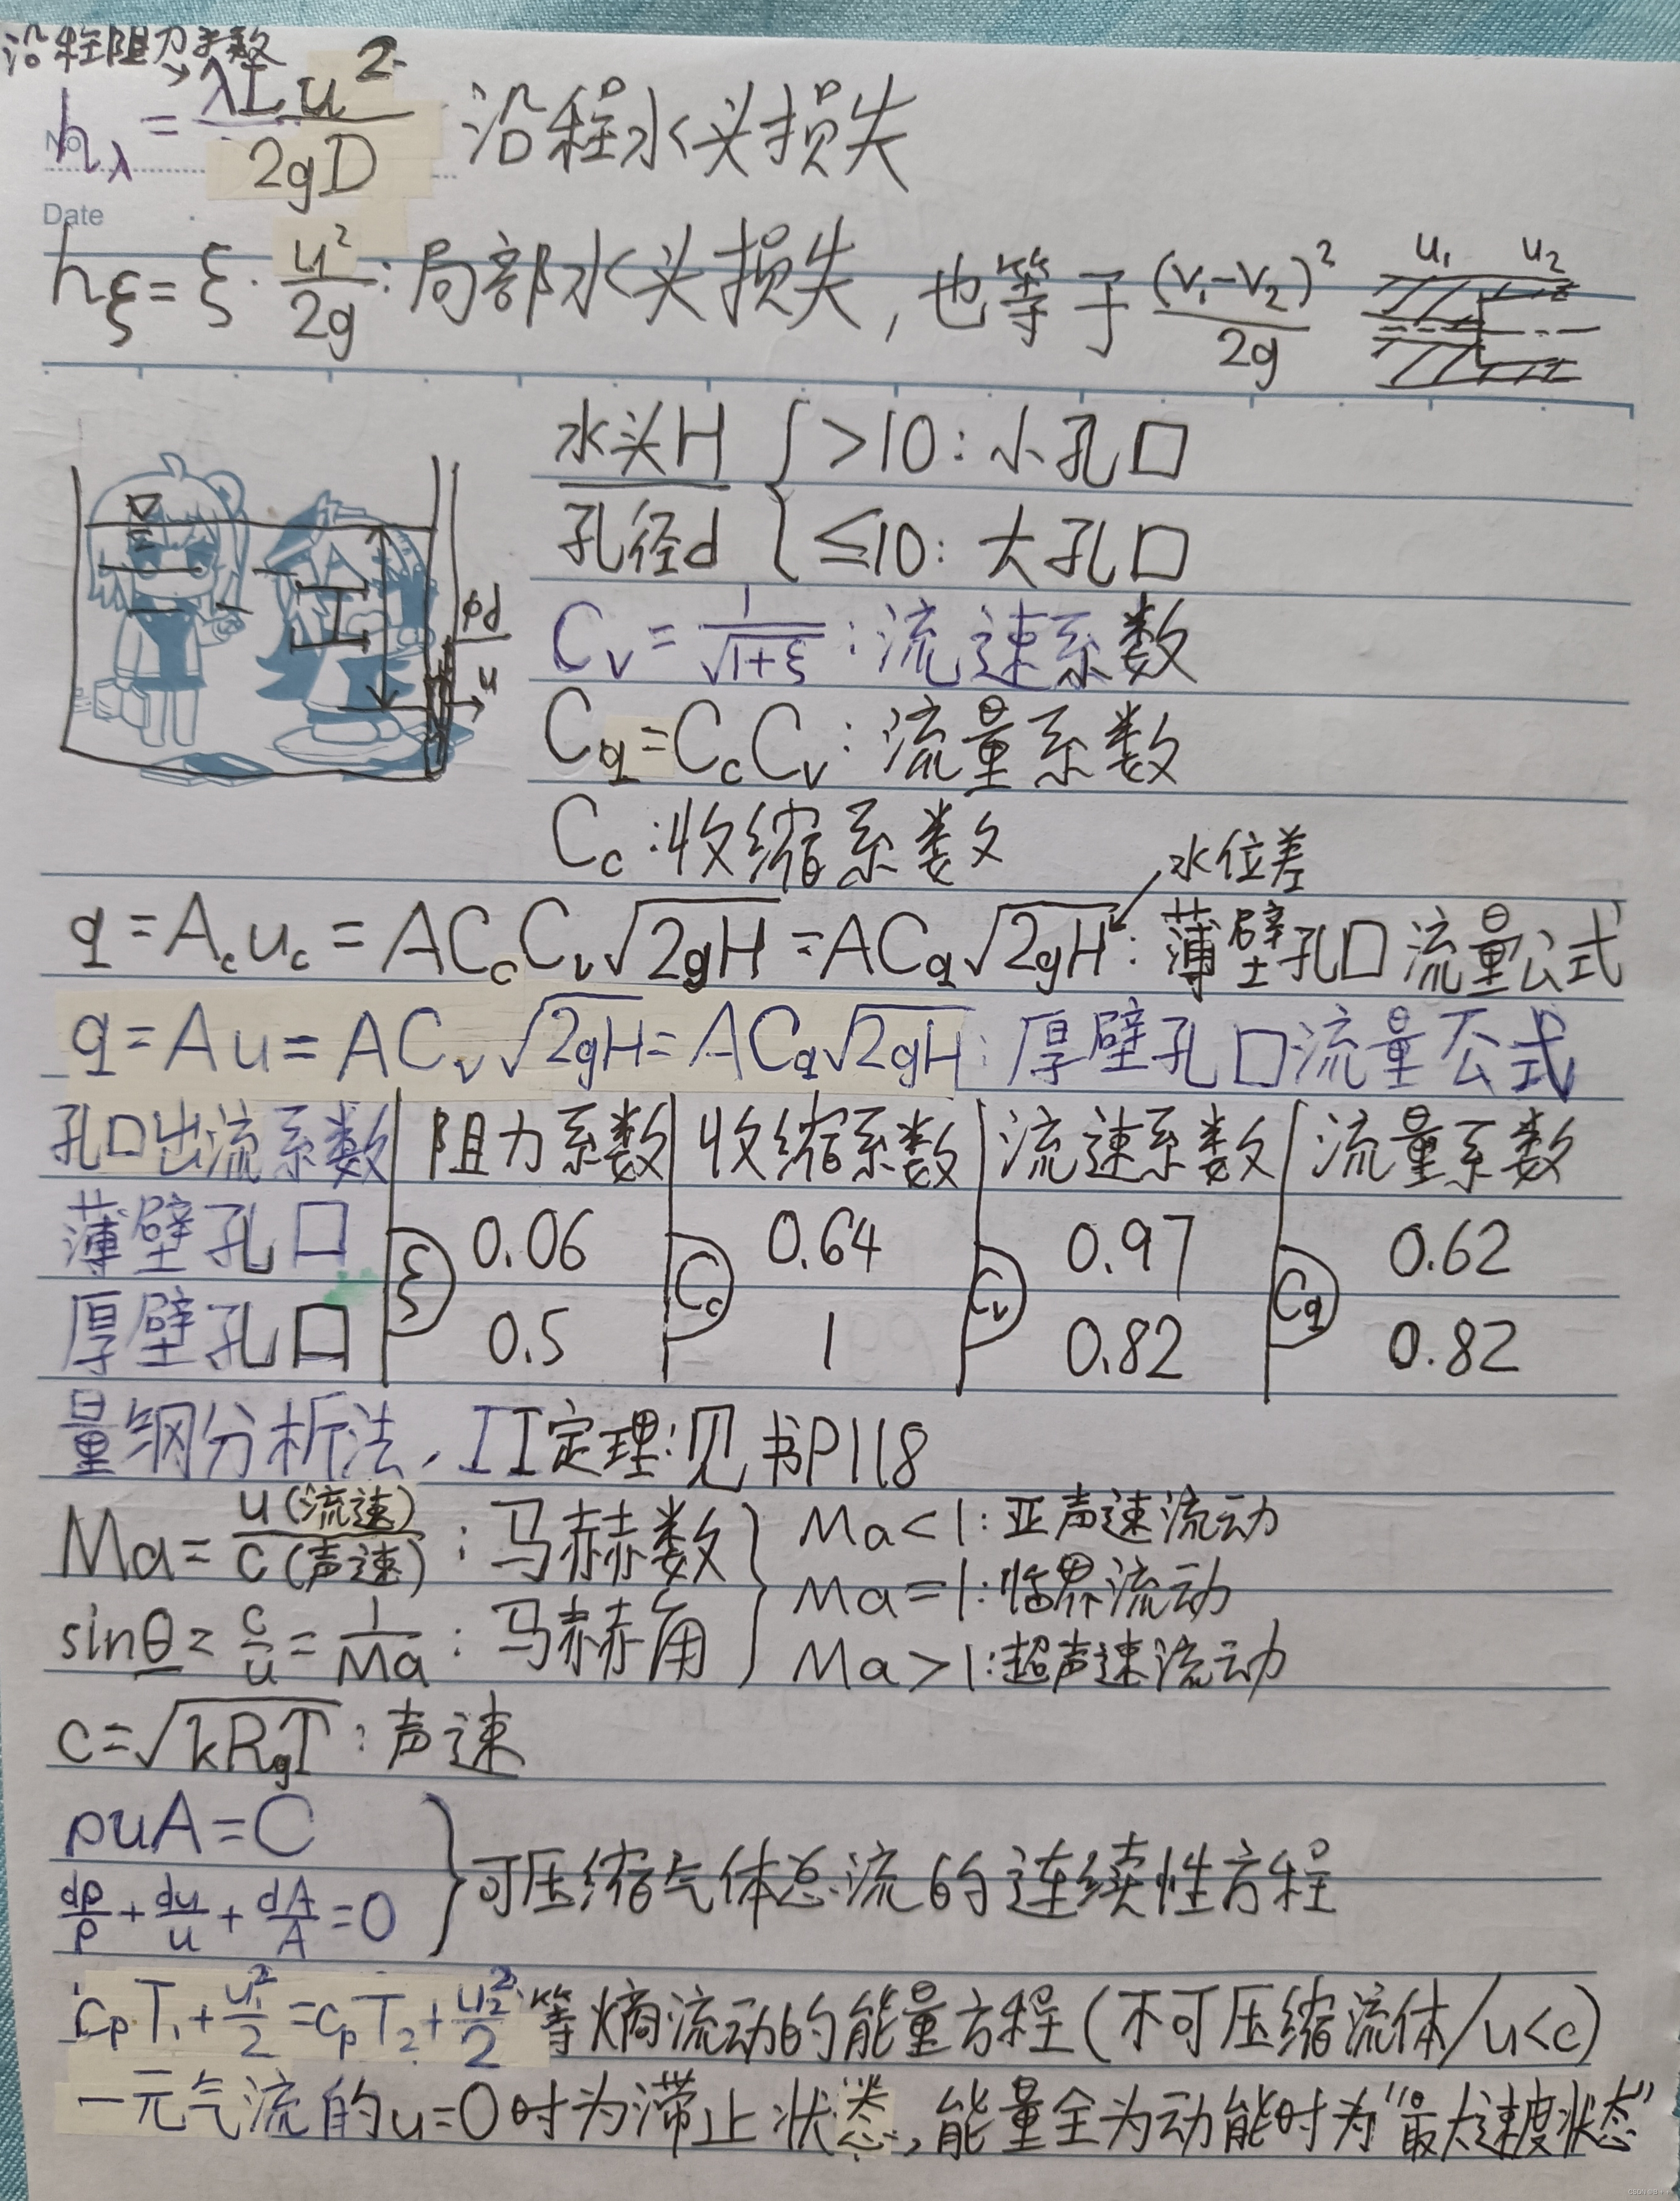 沿程阻力系数
hλ = λLu²/2gD 沿程水头损失
No.
Date
hξ = ξ · u²/2g : 局部水头损失, 也等于 (V₁-V₂)²/2g
u₁ u₂
水头H/孔径d { >10: 小孔口
≤10: 大孔口
H
φd
u
Cv = 1/√(1+ξ) : 流速系数
Cq = CcCv : 流量系数
Cc : 收缩系数
水位差
q = Acuc = ACcCv√(2gH) = ACq√(2gH) : 薄壁孔口流量公式
q = Au = ACv√(2gH) = ACq√(2gH) : 厚壁孔口流量公式
孔口出流系数 | 阻力系数 | 收缩系数 | 流速系数 | 流量系数
ξ Cc Cv Cq
薄壁孔口 0.06 0.64 0.97 0.62
厚壁孔口 0.5 1 0.82 0.82
量钢分析法、π定理:见书P118
Ma = u(流速)/c(声速) : 马赫数
sinθ = c/u = 1/Ma : 马赫角
Ma<1: 亚声速流动
Ma=1: 临界流动
Ma>1: 超声速流动
c = √(kRgT) : 声速
ρuA = C
dρ/ρ + du/u + dA/A = 0
} 可压缩气体总流的连续性方程
cpT₁ + u₁²/2 = cpT₂ + u₂²/2 : 等熵流动的能量方程(不可压缩流体/u<c)
一元气流的u=0时为滞止状态, 能量全为动能时为"最大速度状态"